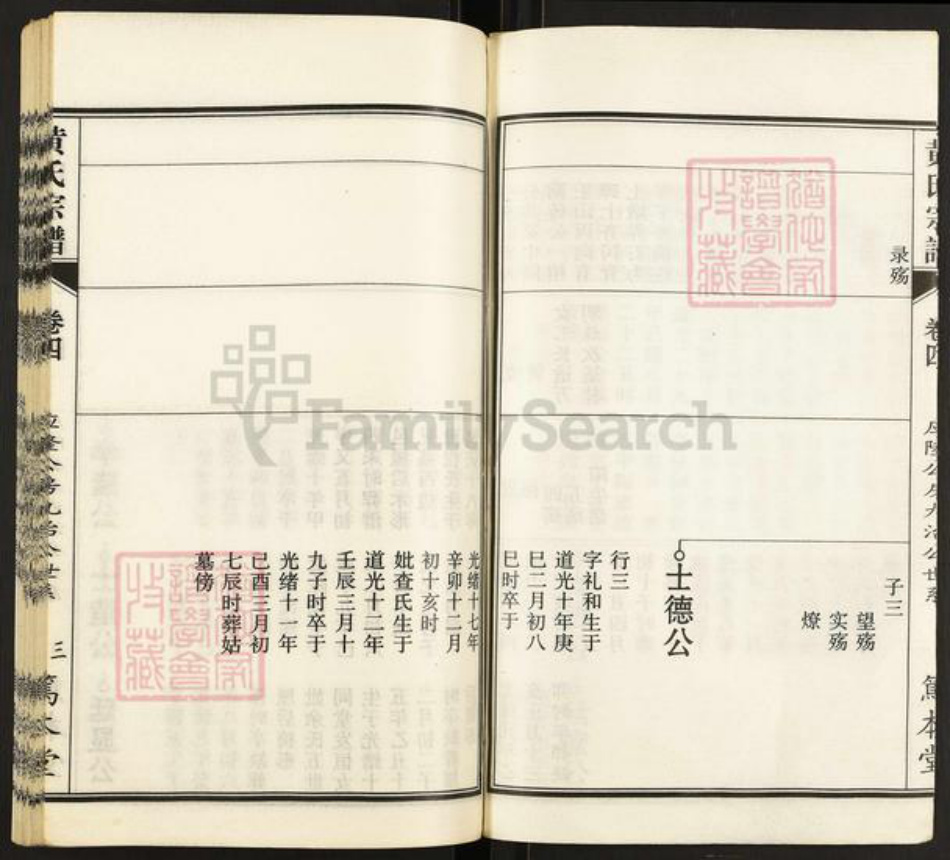 黄氏宗谱
卷四
笃本堂
录殇
子三
望殇
实殇
燎
士德公
行三
字礼和生于
道光十年庚
巳二月初八
巳时卒于
光绪十七年
辛卯十二月
初十亥时
妣查氏生于
道光十二年
壬辰三月十
九子时卒于
光绪十一年
己酉三月初
七辰时葬姑
墓傍
黄氏宗谱
卷四
三
笃本堂
譜學會
收藏
FamilySearch